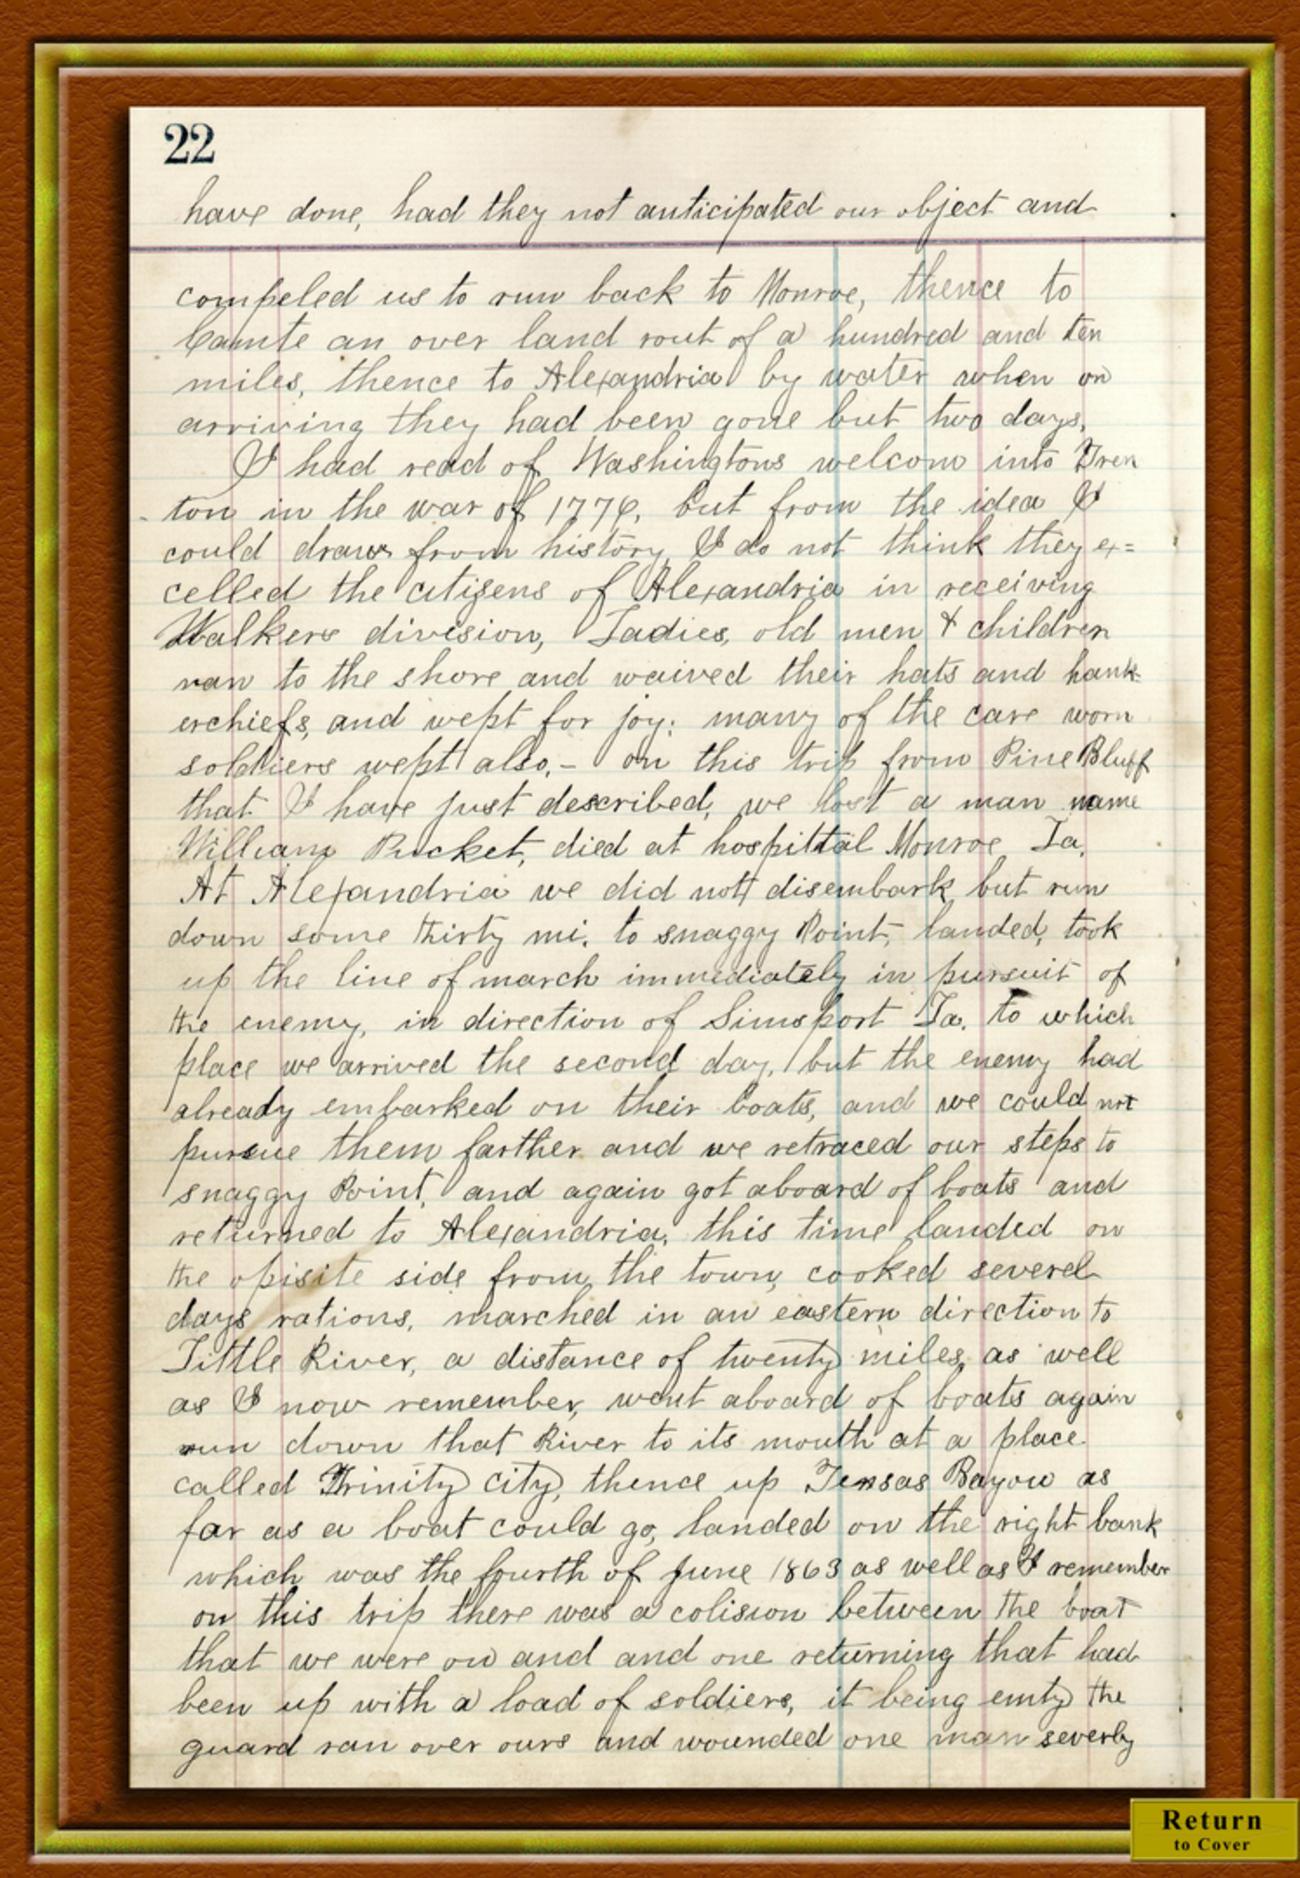 22
have done, had they not anticipated our object and
compeled us to run back to Monroe, thence to
Camte an over land rout of a hundred and ten
miles, thence to Alexandria by water when on
arriving they had been gone but two days.
I had read of Washingtons welcom into Tren
ton in the war of 1776, but from the idea I
could draw from history I do not think they ex=
celled the citizens of Alexandria in receiving
Walkers division, Ladies, old men & children
ran to the shore and waived their hats and hank-
erchiefs, and wept for joy; many of the care worn
soldiers wept also.- on this trip from Pine Bluff
that I have just described, we lost a man name
William Pucket, died at hospittal Monroe La.
At Alexandria we did not disembark but run
down some thirty mi. to snaggy Point, landed, took
up the line of march immediately in pursuit of
the enemy, in direction of Simsport La. to which
place we arrived the second day, but the enemy had
already embarked on their boats, and we could not
pursue them farther and we retraced our steps to
snaggy Point, and again got aboard of boats and
returned to Alexandria, this time landed on
the opisite side from the town, cooked severel
days rations, marched in an eastern direction to
Little River, a distance of twenty miles, as well
as I now remember, went aboard of boats again
run down that River to its mouth at a place
called Trinity city, thence up Tensas Bayou as
far as a boat could go, landed on the right bank
which was the fourth of June 1863 as well as I remember
on this trip there was a colision between the boat
that we were on and and one returning that had
been up with a load of soldiers, it being emty the
guard ran over ours and wounded one man severly
Return
to Cover